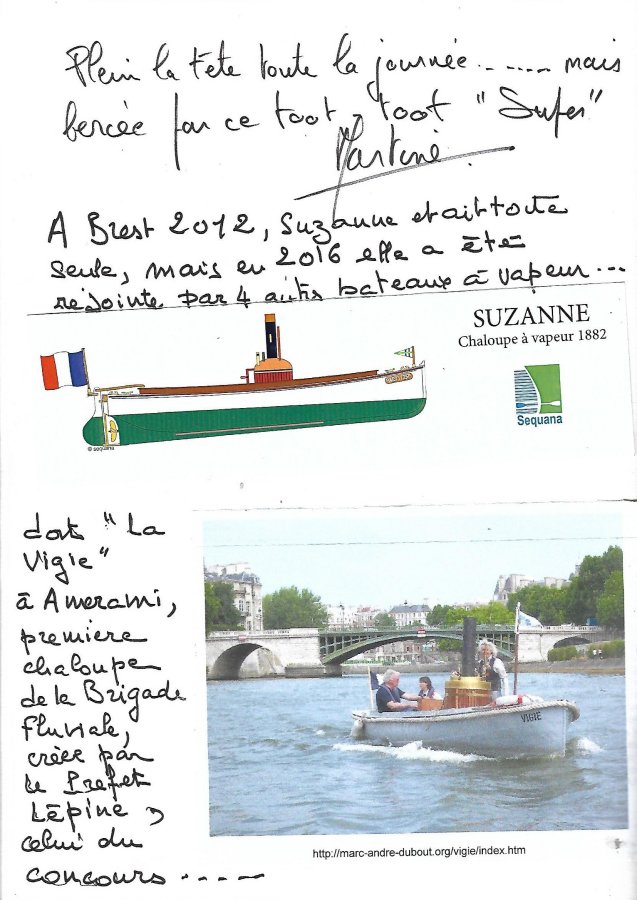 Plein la tête toute la journée........ mais
bercée par ce toot, toot "Super"
Martine
A Brest 2012, Suzanne etait toute
seule, mais en 2016 elle a été
rejointe par 4 autrs bateaux à vapeur...
SUZANNE
Chaloupe à vapeur 1882
Sequana
© sequana
dont "La
Vigie"
à Amerami,
première
chaloupe
de la Brigade
fluviale,
créée par
le Prefet
Lépine,
celui du
concours.....
VIGIE
http://marc-andre-dubout.org/vigie/index.htm